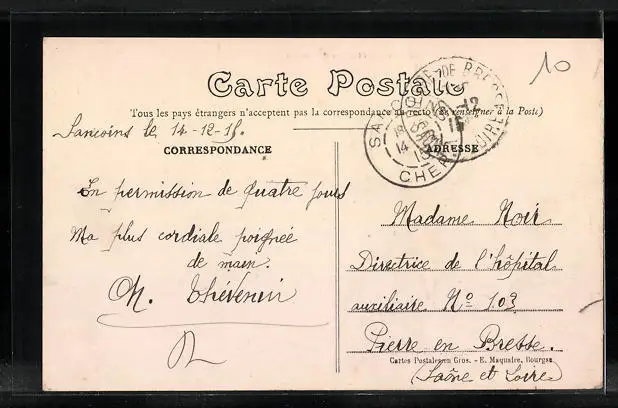 10
Carte Postale
Tous les pays étrangers n'acceptent pas la correspondance au recto (Se renseigner à la Poste)
Sancoins le 14-12-15.
CORRESPONDANCE
En permission de quatre jours
Ma plus cordiale poignée
de main.
Thévenin
SANCOINS
14
15
CHER
DE BRESSE
12
15
LOIRE
ADRESSE
Madame Noir
Directrice de l'hôpital
auxiliaire Nº 103
Pierre en Bresse.
Cartes Postales en Gros. - E. Maquaire, Bourges
(Saône et Loire)